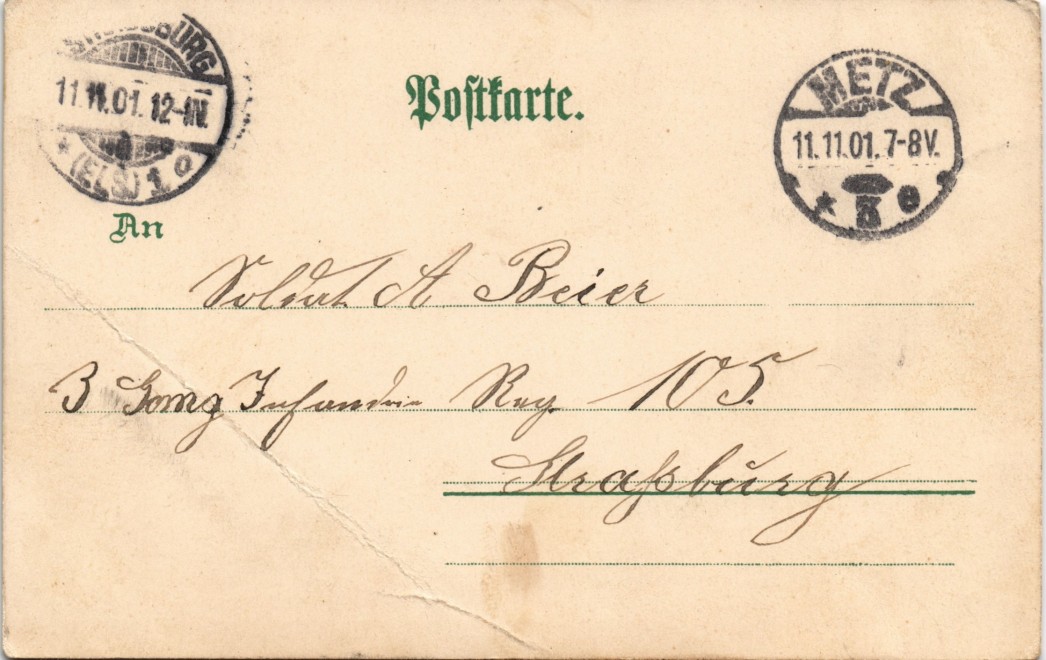 STRASSBURG
11.11.01. 12-1N.
* (ELS.) 1. o
METZ
11.11.01. 7-8V.
* 3 e
Postkarte.
An
Soldat A Beier
3 Comg Infandrie Reg. 105.
Straßburg